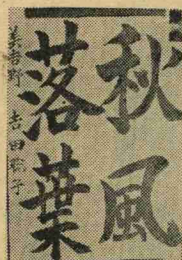 秋風
落葉
美吉野 吉田聡子